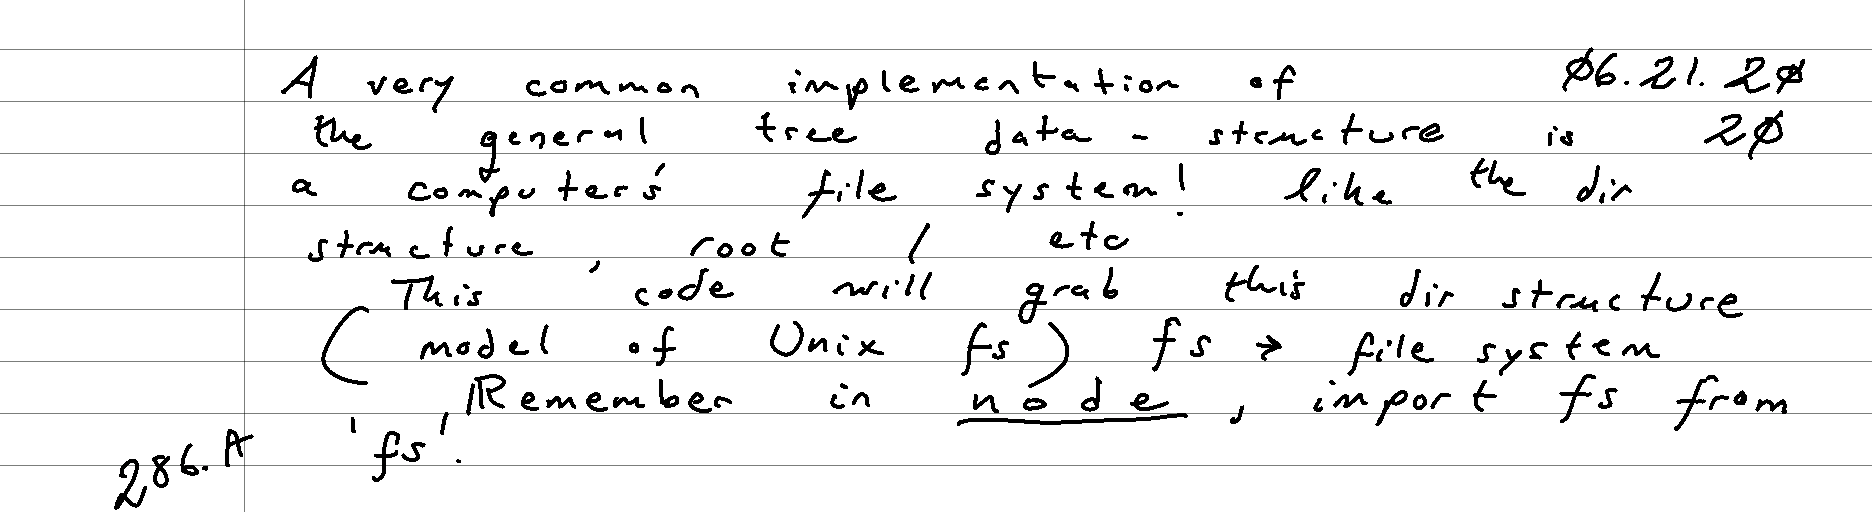 A very common implementation of 06.21.20
the general tree data-structure is 20
a computer's file system! like the dir
structure, root / etc
This code will grab this dir structure
(model of Unix fs) fs → file system
Remember in node, import fs from
'fs'.
286.A